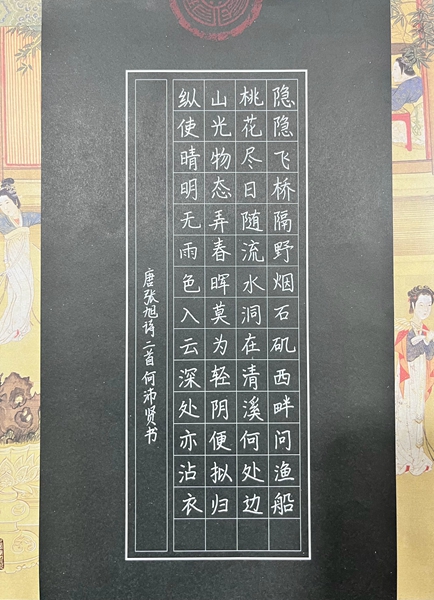 隐隐飞桥隔野烟石矶西畔问渔船
桃花尽日随流水洞在清溪何处边
山光物态弄春晖莫为轻阴便拟归
纵使晴明无雨色入云深处亦沾衣
唐张旭诗二首何沛贤书